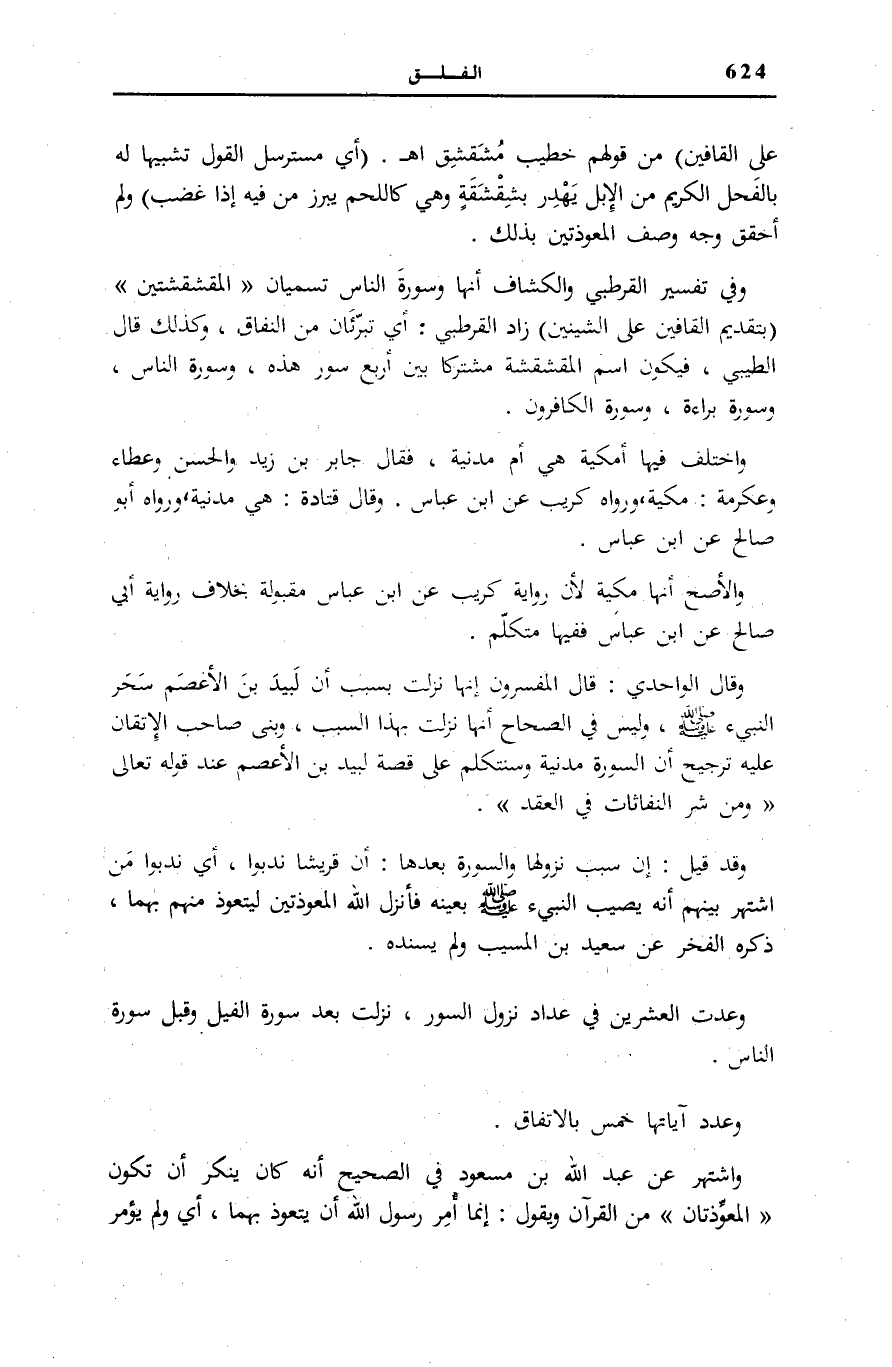 624
الفلق
على القافين) من قولهم خطيب مُشَقشِق اهـ . (أي مسترسل القول تشبيها له
بالفَحل الكريم من الإِبل يَهْدِر بشِقْشَقَةٍ وهي كاللحم يبرز من فيه إذا غضب) ولم
أحقق وجه وصف المعوذتين بذلك .
وفي تفسير القرطبي والكشاف أنها وسورةَ الناس تسميان « المقشقشتين »
(بتقديم القافين على الشينين) زاد القرطبي : أي تبرّئَان من النفاق ، وكذلك قال
الطيبي ، فيكون اسم المقشقشة مشتركا بين أربع سور هذه ، وسورة الناس ،
وسورة براءة ، وسورة الكافرون .
واختلف فيها أمكية هي أم مدنية ، فقال جابر بن زيد والحسن وعطاء
وعكرمة : مكية،ورواه كريب عن ابن عباس . وقال قتادة : هي مدنية،ورواه أبو
صالح عن ابن عباس .
والأصح أنها مكية لأن رواية كريب عن ابن عباس مقبولة بخلاف رواية أبي
صالح عن ابن عباس ففيها متكلّم .
وقال الواحدي : قال المفسرون إنها نزلت بسبب أن لَبيدَ بنَ الأعْصَم سَحَر
النبيء ﷺ ، وليس في الصحاح أنها نزلت بهذا السبب ، وبنى صاحب الإِتقان
عليه ترجيح أن السورة مدنية وسنتكلم على قصة لبيد بن الأعصم عند قوله تعالى
« ومن شر النفاثات في العقد » .
وقد قيل : إن سبب نزولها والسورة بعدها : أن قريشا ندبوا ، أي ندبوا مَن
اشتهر بينهم أنه يصيب النبيء ﷺ بعينه فأنزل الله المعوذتين ليتعوذ منهم بهما ،
ذكره الفخر عن سعيد بن المسيب ولم يسنده .
وعدت العشرين في عداد نزول السور ، نزلت بعد سورة الفيل وقبل سورة
الناس .
وعدد آياتها خمس بالاتفاق .
واشتهر عن عبد الله بن مسعود في الصحيح أنه كان ينكر أن تكون
« المعوِّذتان » من القرآن ويقول : إنما أُمِر رسول الله أن يتعوذ بهما ، أي ولم يؤمر